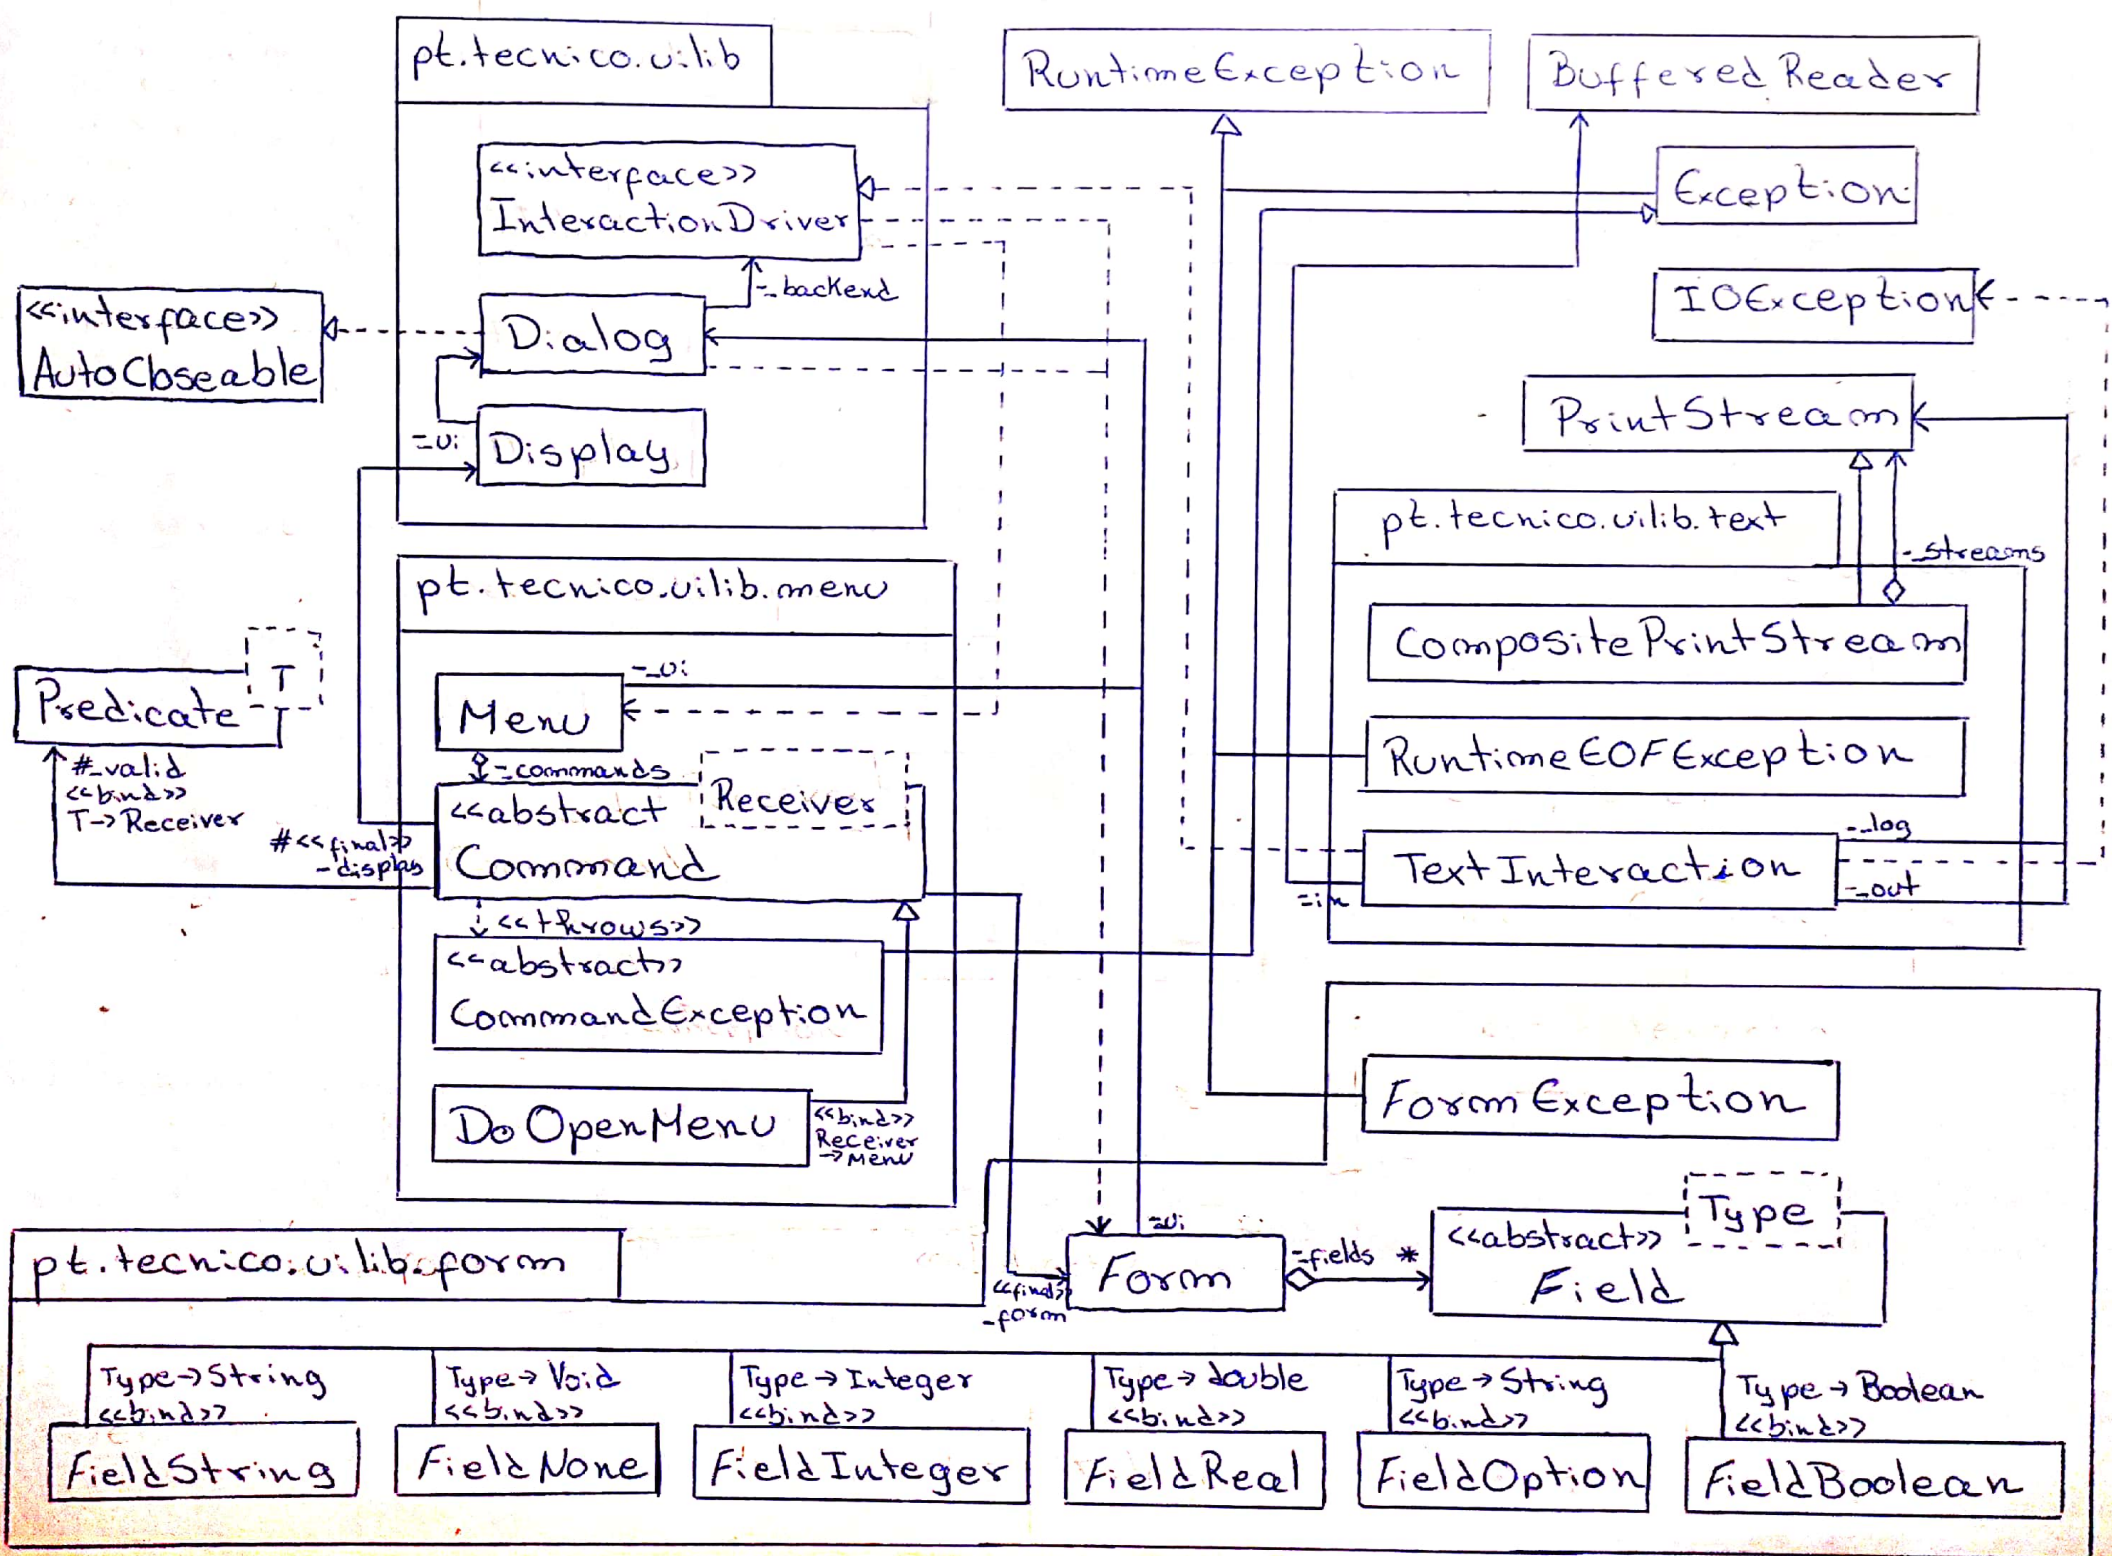 pt.tecnico.uilib
RuntimeException
BufferedReader
<<interface>>
InteractionDriver
Exception
-_backend
IOException
<<interface>>
AutoCloseable
Dialog
PrintStream
-_ui
Display
pt.tecnico.uilib.text
-_streams
pt.tecnico.uilib.menu
CompositePrintStream
T
Predicate
-_ui
Menu
RuntimeEOFException
#_valid
<<bind>>
T->Receiver
-_commands
<<abstract
Receiver
Command
#<<final>>
_display
-_log
TextInteraction
-_out
-_in
<<throws>>
<<abstract>>
CommandException
DoOpenMenu
<<bind>>
Receiver
->Menu
FormException
pt.tecnico.uilib.form
-_ui
Form
<<final>>
_form
-_fields *
Type
<<abstract>>
Field
Type->String
<<bind>>
FieldString
Type->Void
<<bind>>
FieldNone
Type->Integer
<<bind>>
FieldInteger
Type->double
<<bind>>
FieldReal
Type->String
<<bind>>
FieldOption
Type->Boolean
<<bind>>
FieldBoolean